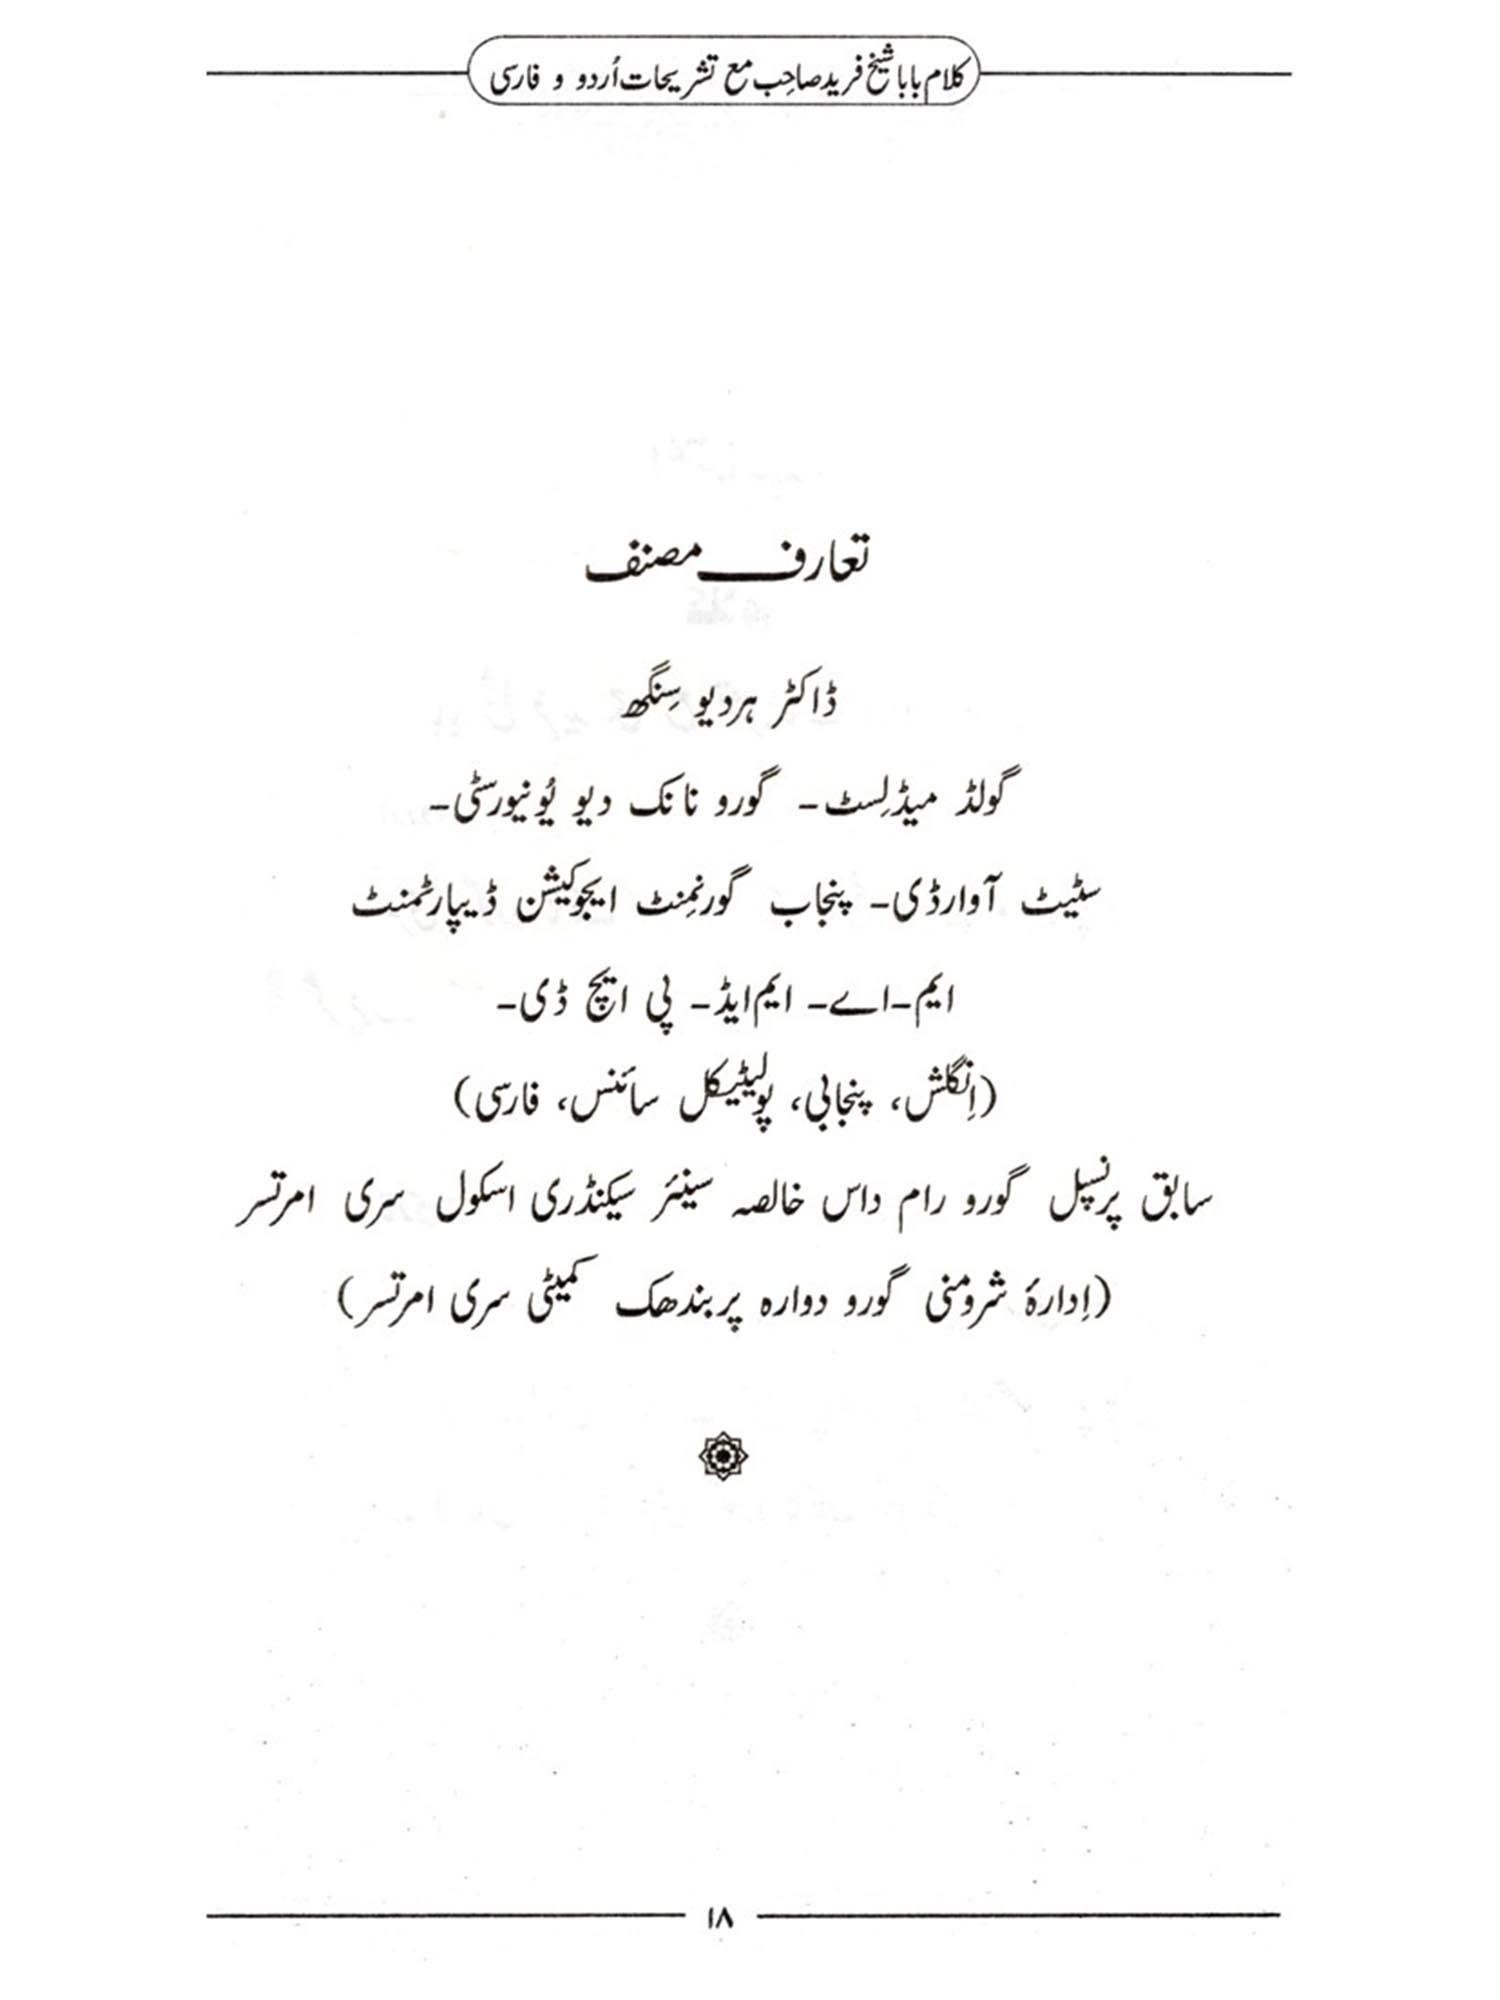 کلام بابا شیخ فرید صاحِب مع تشریحات اُردو و فارسی
تعارف مصنف
ڈاکٹر ہردیو سِنگھ
گولڈ میڈلِسٹ۔ گورو نانک دیو یُونیورسٹی۔
سٹیٹ آوارڈی۔ پنجاب گورنمِنٹ ایجوکیشن ڈیپارٹمنٹ
ایم۔اے۔ ایم ایڈ۔ پی ایچ ڈی۔
(اِنگلش، پنجابی، پولیٹیکل سائنس، فارسی)
سابق پرنسپل گورو رام داس خالصہ سینئر سیکنڈری اسکول سری امرتسر
(اِدارۂ شرومنی گورو دوارہ پربندھک کمیٹی سری امرتسر)
۱۸